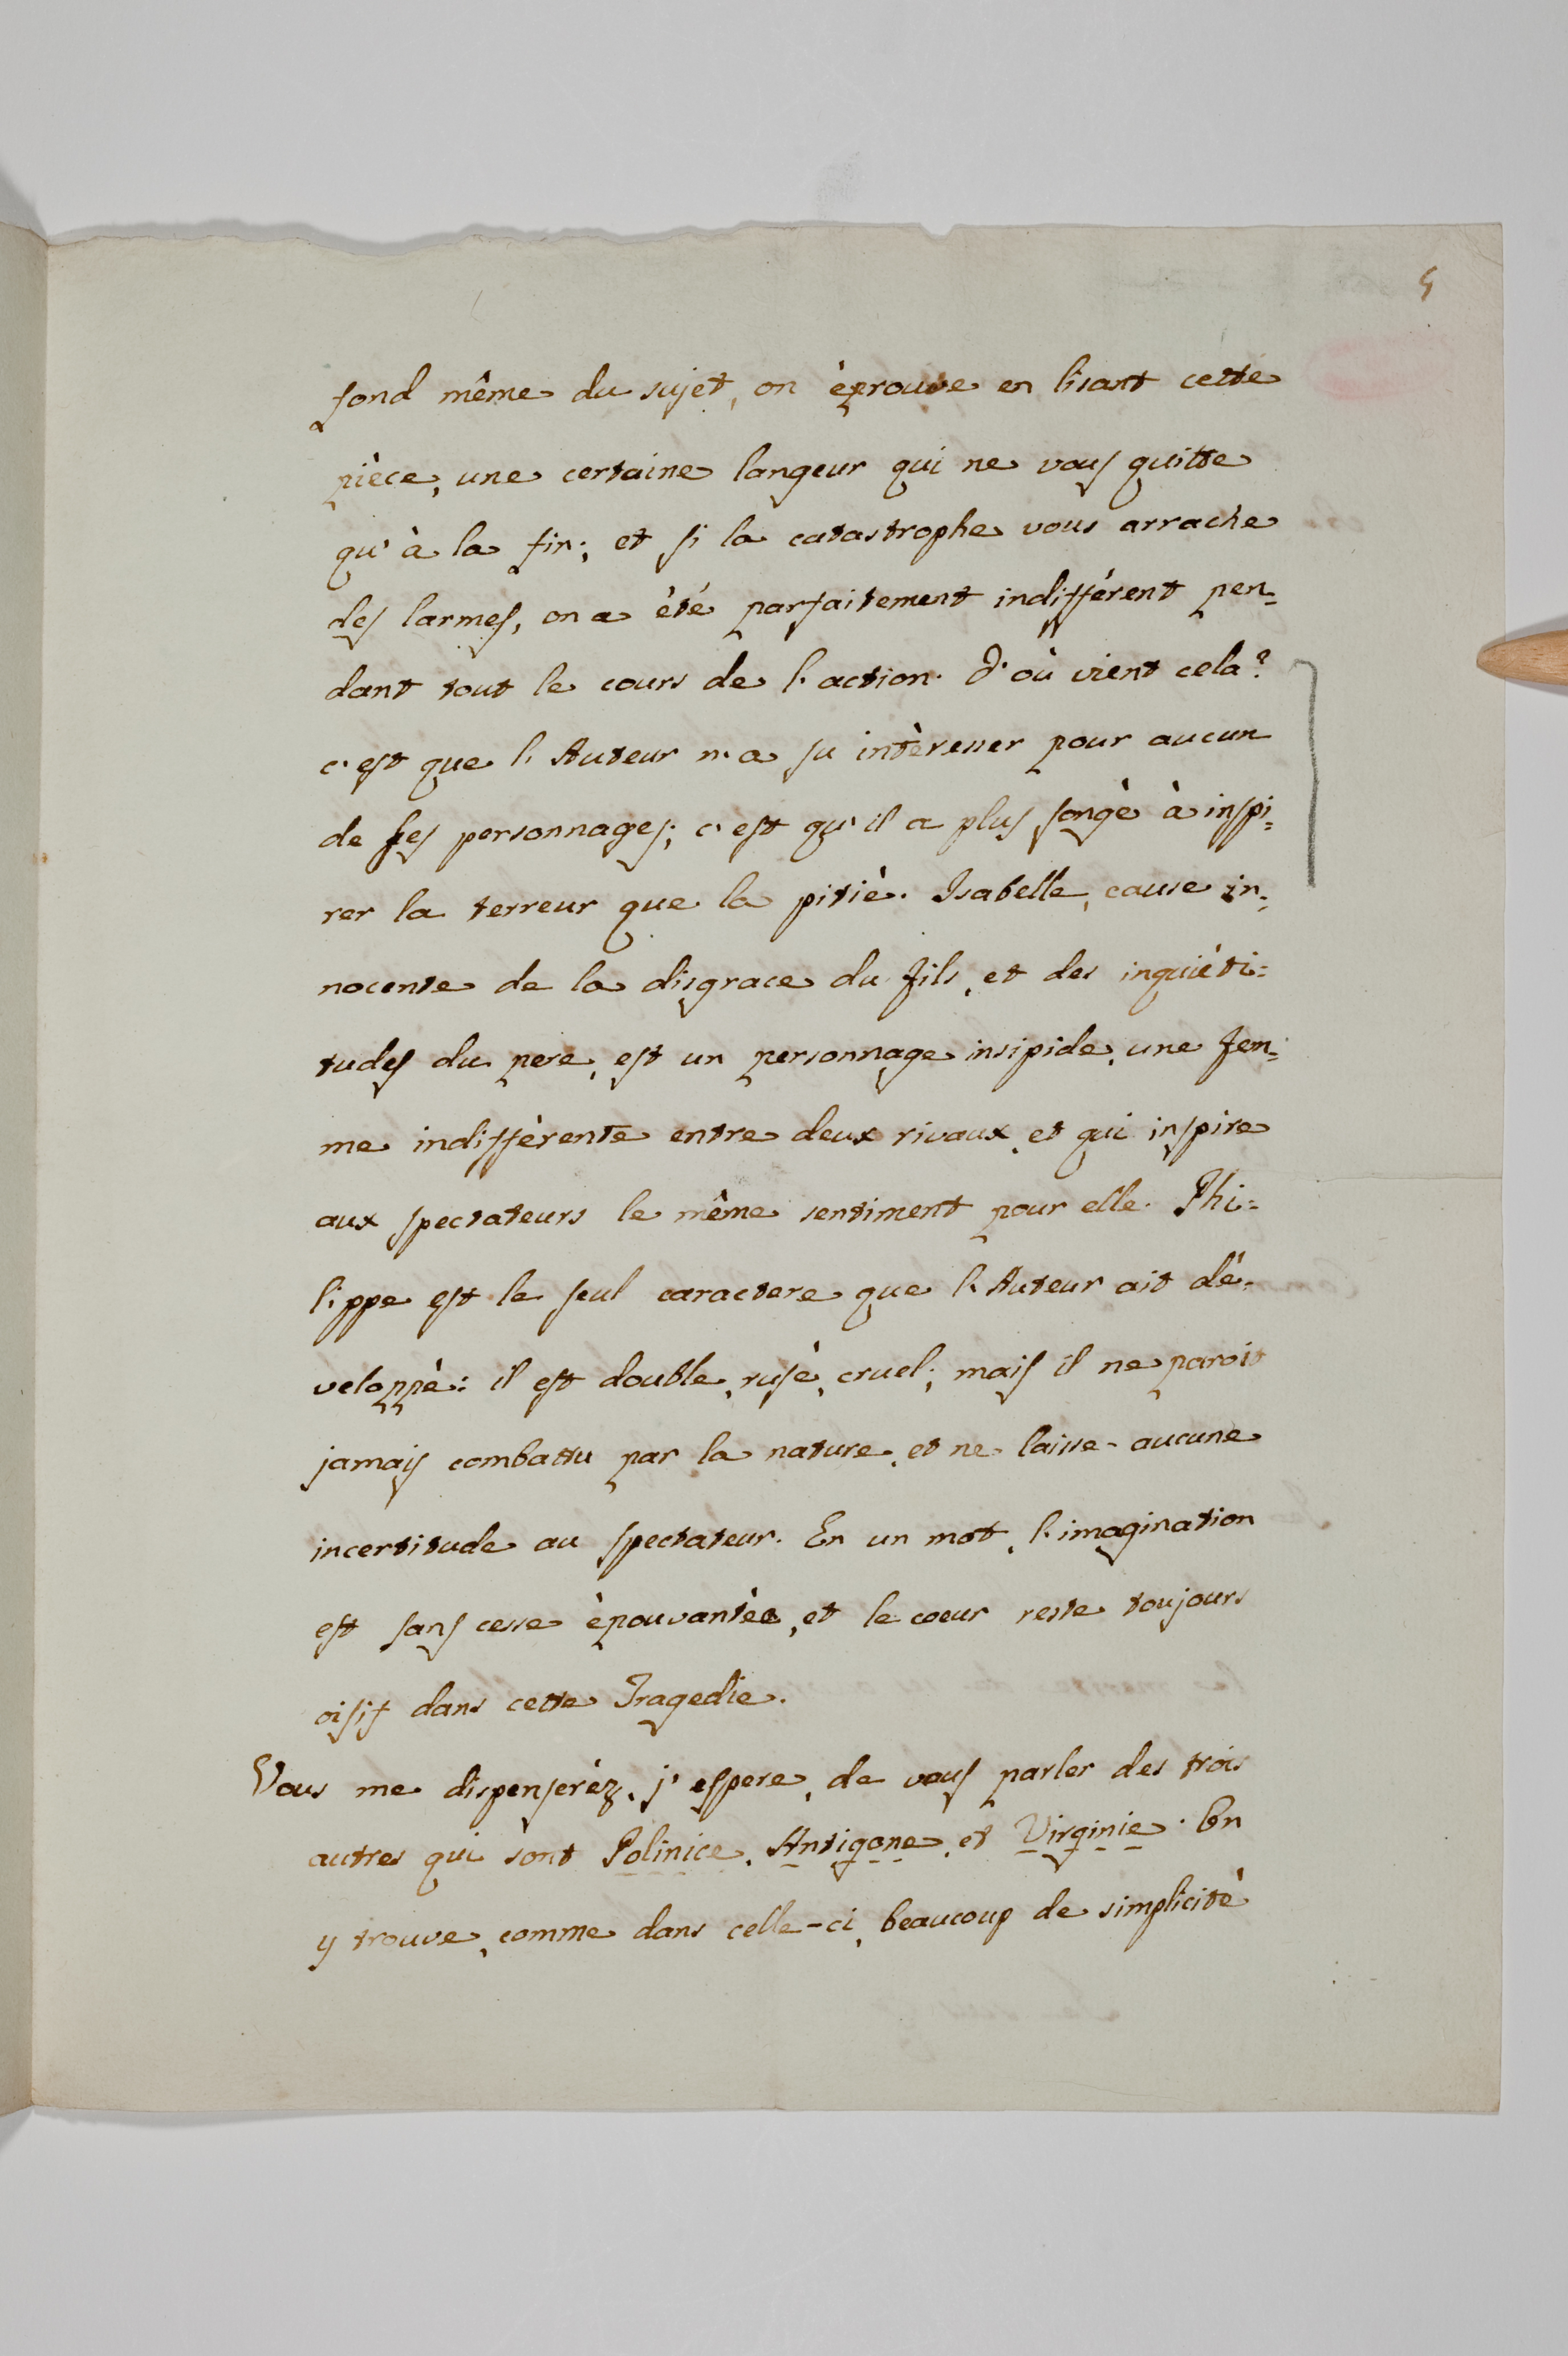 5
fond même du sujet, on èprouve en lisant cette
pièce, une certaine langeur qui ne vous quitte
qu'à la fin; et si la catastrophe vous arrache
des larmes, on a èté parfaitement indifférent pen=
dant tout le cours de l'action. D'où vient cela?
c'est que l'Auteur n'a su intèresser pour aucun
de ses personnages; c'est qu'il a plus songè à inspi=
rer la terreur que la pitiè. Isabelle, cause in=
nocente de la disgrace du fils, et des inquièti=
tudes du pere, est un personnage insipide, une fem=
me indiffèrente entre deux rivaux, et qui inspire
aux spectateurs le même sentiment pour elle. Phi=
lippe est le seul caractere que l'Auteur ait dé=
veloppè: il est double, rusè, cruel; mais il ne paroit
jamais combattu par la nature, et ne laisse aucune
incertitude au spectateur. En un mot, l'imagination
est sans cesse èpouvantèe, et le coeur reste toujours
oisif dans cette Tragedie.
Vous me dispenserèz, j'espere, de vous parler des trois
autres qui sont Polinice, Antigone, et Virginie. On
y trouve, comme dans celle-ci, beaucoup de simplicitè